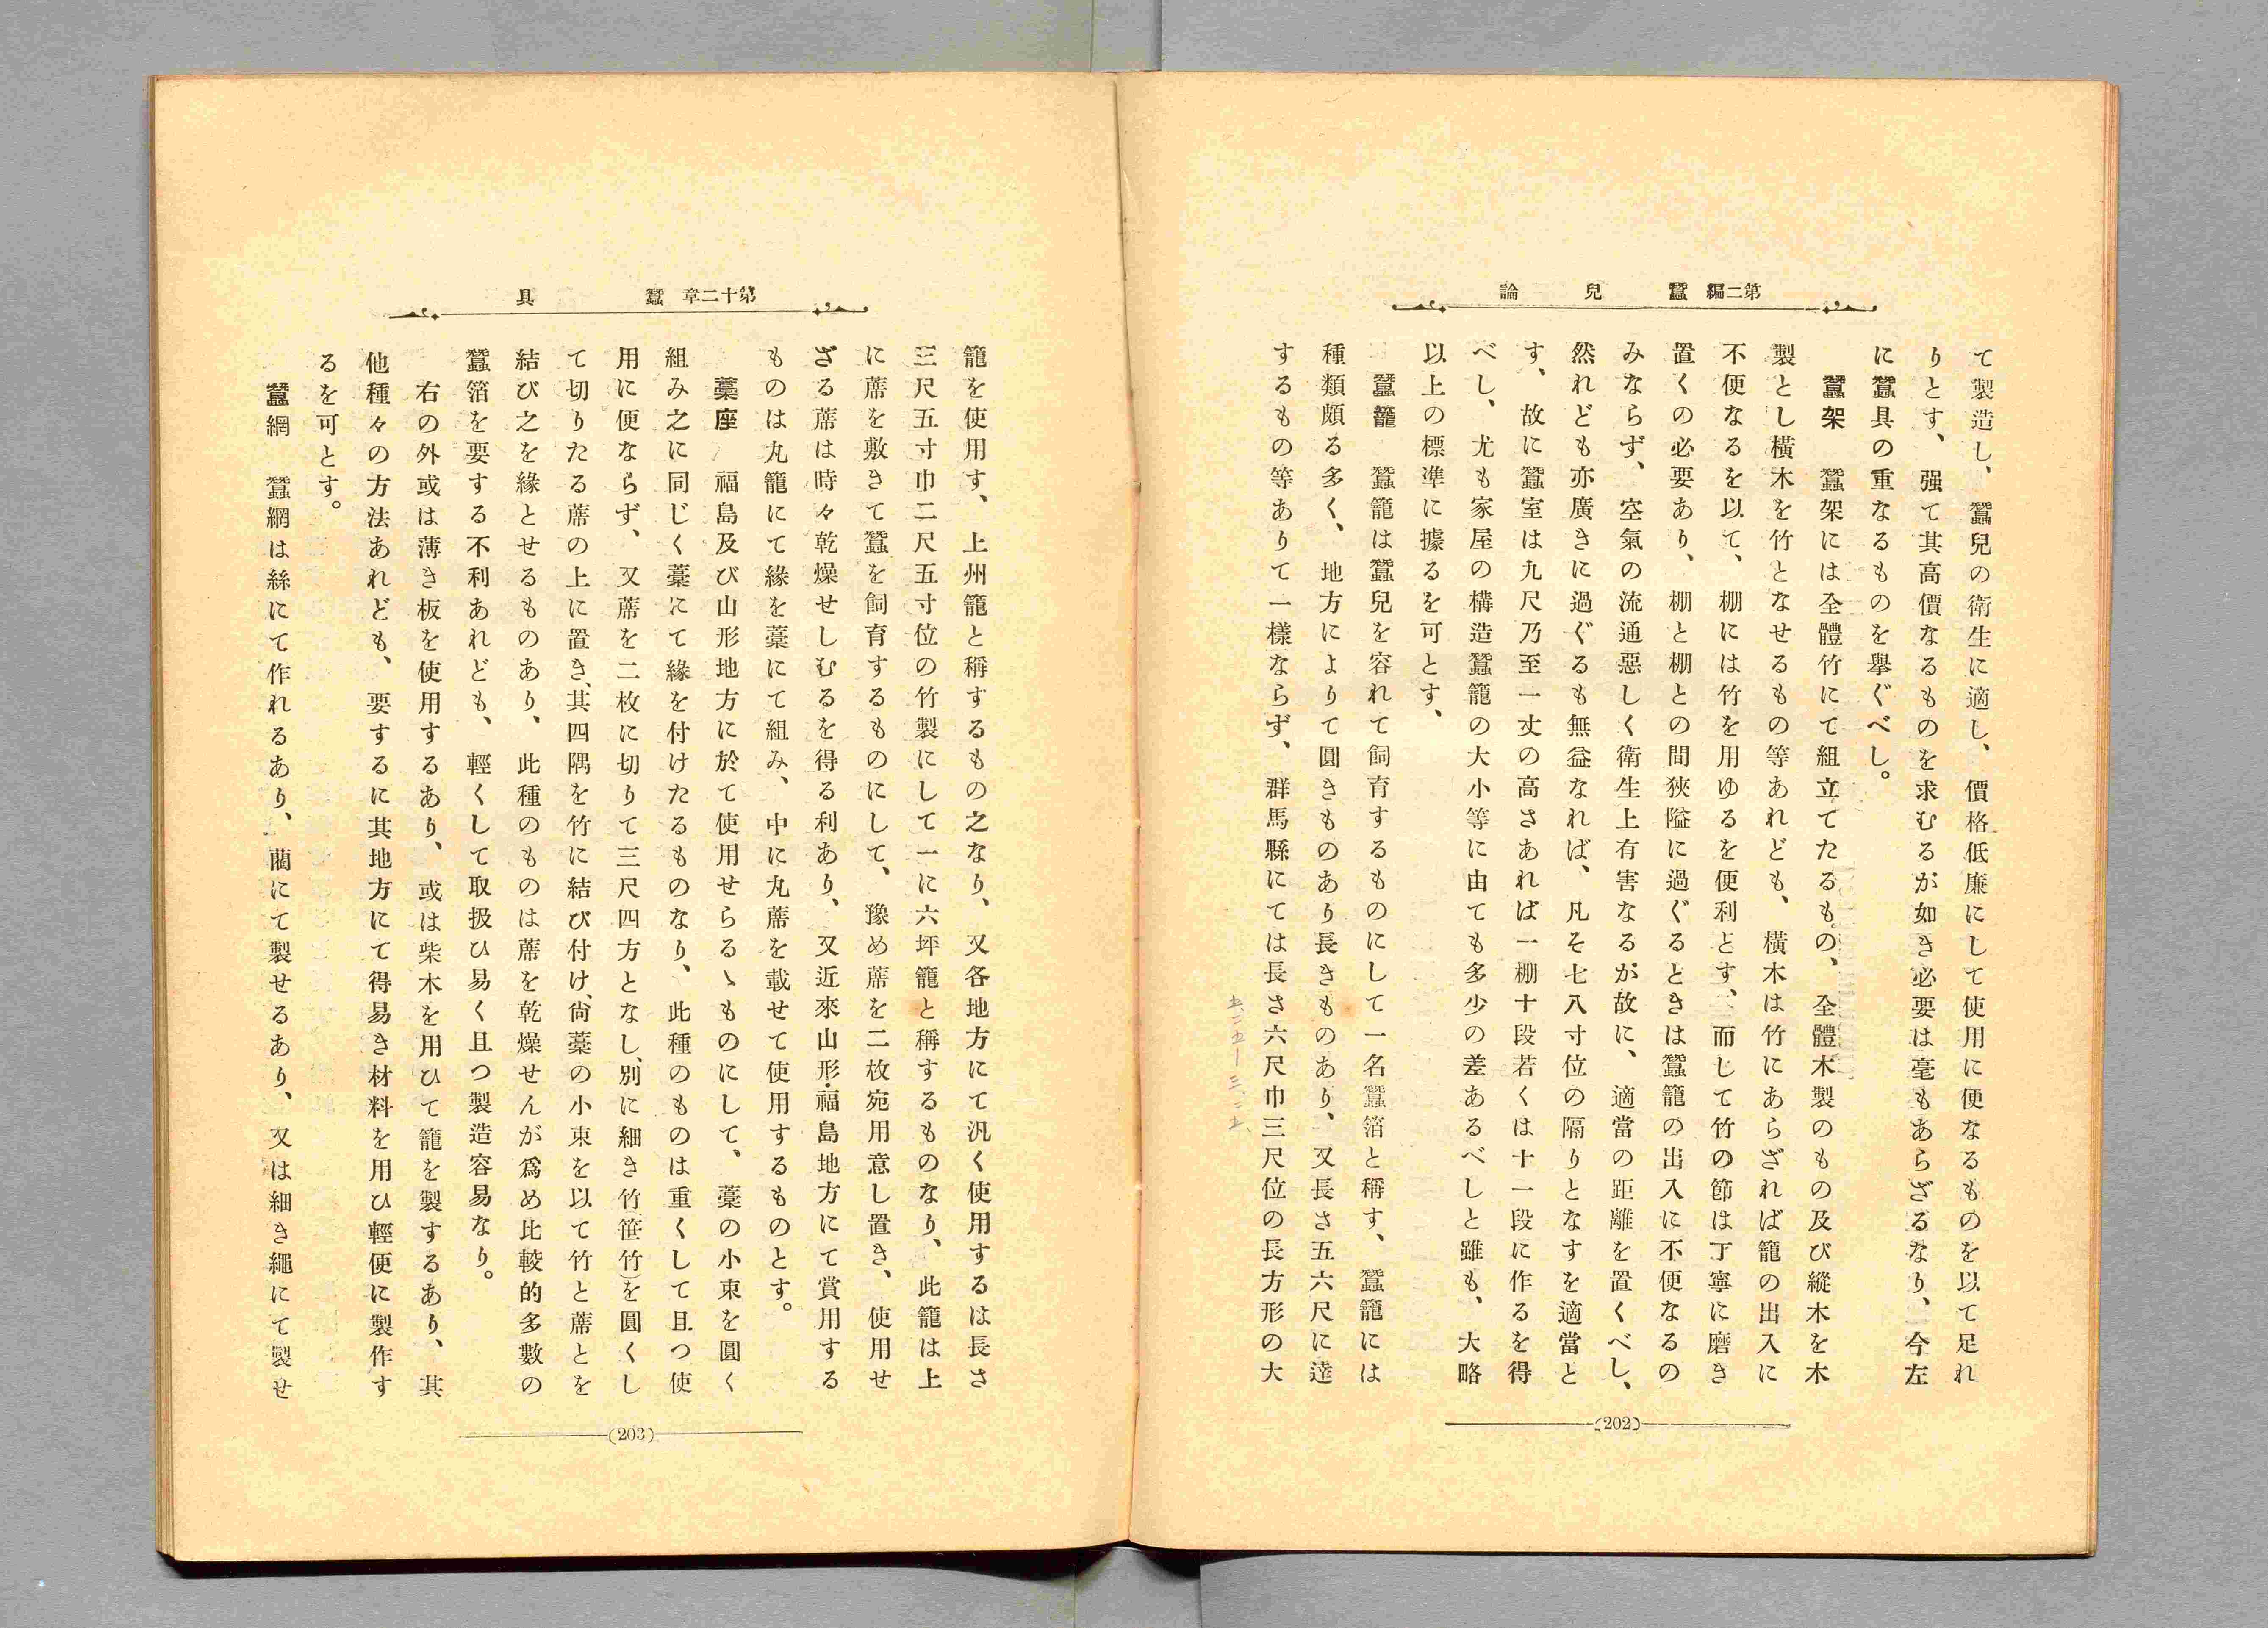 第二編　蠶兒論
て製造し、蠶兒の衛生に適し、價格低廉にして使用に便なるものを以て足れ
りとす、强て其高價なるものを求むるが如き必要は毫もあらざるなり、今左
に蠶具の重なるものを擧ぐべし。
蠶架　蠶架には全體竹にて組立てたるもの、全體木製のもの及び縱木を木
製とし橫木を竹となせるもの等あれども、橫木は竹にあらざれば籠の出入に
不便なるを以て、棚には竹を用ゆるを便利とす、而して竹の節は丁寧に磨き
置くの必要あり、棚と棚との間狹隘に過ぐるときは蠶籠の出入に不便なるの
みならず、空氣の流通惡しく衛生上有害なるが故に、適當の距離を置くべし、
然れども亦廣きに過ぐるも無益なれば、凡そ七八寸位の隔りとなすを適當と
す、故に蠶室は九尺乃至一丈の高さあれば一棚十段若くは十一段に作るを得
べし、尤も家屋の構造蠶籠の大小等に由ても多少の差あるべしと雖も、大略
以上の標準に據るを可とす、
蠶籠　蠶籠は蠶兒を容れて飼育するものにして一名蠶箔と稱す、蠶籠には
種類頗る多く、地方によりて圓きものあり長きものあり、又長さ五六尺に達
するもの等ありて一樣ならず、群馬縣にては長さ六尺巾三尺位の長方形の大
(202)
第十二章　蠶具
籠を使用す、上州籠と稱するもの之なり、又各地方にて汎く使用するは長さ
三尺五寸巾二尺五寸位の竹製にして一に六坪籠と稱するものなり、此籠は上
に蓆を敷きて蠶を飼育するものにして、豫め蓆を二枚宛用意し置き、使用せ
ざる蓆は時々乾燥せしむるを得る利あり、又近來山形・福島地方にて賞用する
ものは丸籠にて緣を藁にて組み、中に丸蓆を載せて使用するものとす。
藁座　福島及び山形地方に於て使用せらるゝものにして、藁の小束を圓く
組み之に同じく藁にて緣を付けたるものなり、此種のものは重くして且つ使
用に便ならず、又蓆を二枚に切りて三尺四方となし、別に細き竹(笹竹)を圓くし
て切りたる蓆の上に置き、其四隅を竹に結び付け、尙藁の小束を以て竹と蓆とを
結び之を緣とせるものあり、此種のものは蓆を乾燥せんが爲め比較的多數の
蠶箔を要する不利あれども、輕くして取扱ひ易く且つ製造容易なり。
右の外或は薄き板を使用するあり、或は柴木を用ひて籠を製するあり、其
他種々の方法あれども、要するに其地方にて得易き材料を用ひ輕便に製作す
るを可とす。
蠶網　蠶網は絲にて作れるあり、藺にて製せるあり、又は細き繩にて製せ
(203)